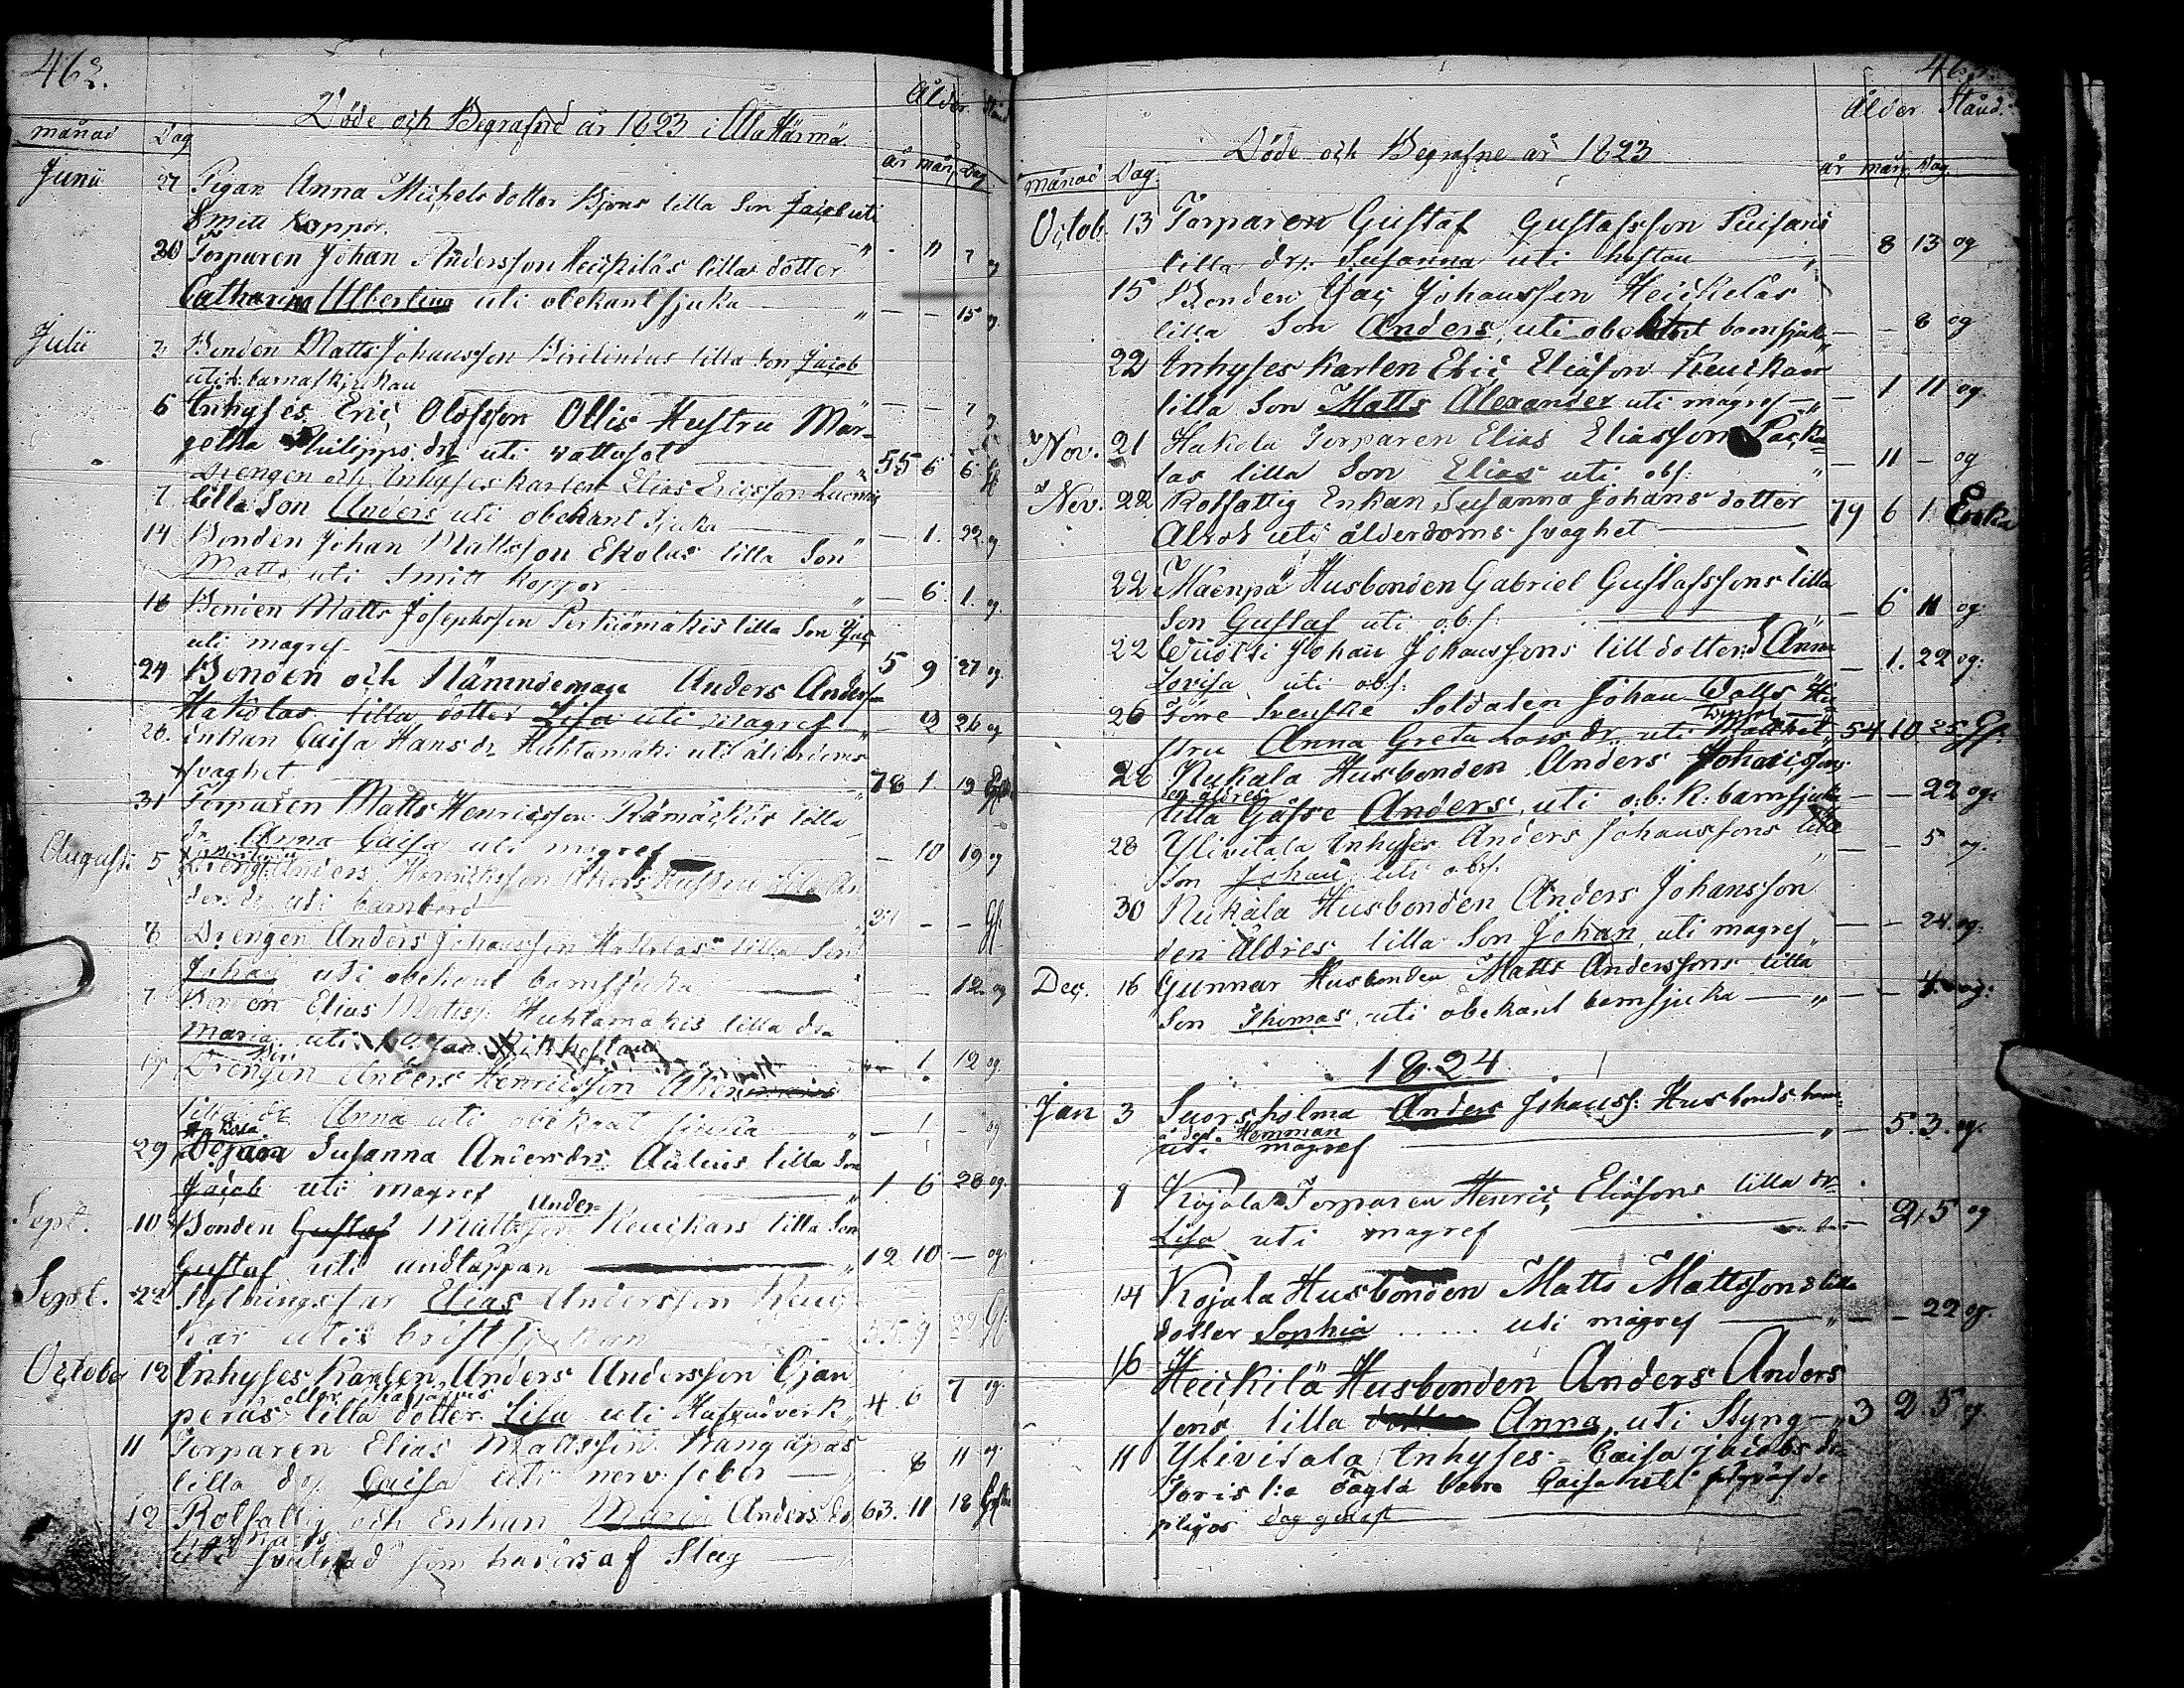 462.
Döde och Begrafne år 1823 i Ala Härmä
Ålder. Stånd
månad Dag år mån Dag
Junii 27 Pigan Anna Michels dotter Bjons lilla Son Jacob uti
Smitt koppor. " - " 7 og
30 Torparen Johan Andersson Heickiläs lilla dotter
Catharina Albertina uti obekant sjuka " - - 15 og.
Julii 3 Bonden Matts Johansson lilla Son Jacob
uti barnaskjukan - - 7
6 Inhyses Eric Olofsson Ollis Hustru Mar-
getha Philipps dr uti vattusot 55 6 6 Gf
7 Drengen och Inhyses karlen Elias Ericsson
lilla Son Anders uti obekant Sjuka - 1. 22. og
14 Bonden Johan Mattsson Ekolas lilla Son
Matts uti Smitt koppor - 6. 1. og.
18 Bonden Matts Josephsson Perkiömäkis lilla Son Jac
uti magref 5 9 27 og.
24 Bonden och Nämndeman Anders Anders
Hakolas lilla dotter Lisa uti magref - 2 26 og
26. Enkan Caisa Hans dr Huhtamäki uti ålderdoms
svaghet 78 1. 19
31 Torparen Matts Henricsson lilla
dr Anna Caisa uti magref - 10 19 og
August: 5 Dreng Anders Henricksson Åkers Hustru Lisa An
ders dr uti barnbörd 31 - - Gf
8 Drengen Anders Johansson lilla Son
Johan uti obekant barnsjuka - - 12. og
7 Bonden Elias Mattss: Huhtamäkis lilla dr
Maria uti Kikhostan - 1 12 og.
19 Drengen Anders Henricsson
lilla dr Anna uti obekant sjuka - 1 - og
29 Hakola Pigan Susanna Anders dr Aulins lilla Son
Jacob uti magref 1 6 28 og.
Sept. 10 Bonden Gustaf Matts Anders-son Keuckars lilla Son
Gustaf uti andtäppan 12 10 - og.
Sept. 22 Sytningsfar Elias Andersson Keuc
kar uti bröstsjukan 55 9 29 Gf.
October 12 Inhyses Karlen Anders Andersson Ojan
peräs eller lilla dotter Lisa uti Hufvudverk 4 6 7 og.
11 Torparen Elias Mattsson Kanganpäs
lilla dr. Caisa uti nerv feber - 8 11 og.
12 Rotfattig och Enkan Maria Anders dr 63. 11 18
uti svulnad som har i rs af Slag
463.
Ålder Stånd.
Döde och Begrafne år 1823
månad Dag. år mån Dag.
Octob. 13 Torparen Gustaf Gustafsson Puisans
lilla dr. Susanna uti hostan - 8 13 og
15 Bonden Isac Johansson Heickeläs
lilla Son Anders, uti obekant barnsjuk - - 8 og
22 Inhyses karlen Eric Eliasson Keuckan
lilla Son Matts Alexander uti magref - 1 11 og.
Nov. 21 Hakola Torparen Elias Eliasson Packa
las lilla Son Elias uti obs: - 11 - og
Nov. 22 Rotfattig Enkan Susanna Johans dotter
Alkok uti ålderdoms svaghet 79 6 1 Enka
22 Mäenpä Husbonden Gabriel Gustafssons lilla
Son Gustaf uti obs: - 6 11 og.
22 Johan Johanssons lill dotter Anna
Lovisa uti obs: - 1. 22 og:
26 Förre Svenske Soldaten Johan Hu
stru Anna Greta Lars dr uti 54 10 25 Gf.
28 Nukala Husbonden Anders Johansson
den äldres
lilla Gosse Anders, uti o:b:K: barnsjuk - - 22 og:
28 Ylivitala Inhyses Anders Johanssons lilla
Son Johan uti obs: - - 5 og.
30 Nukala Husbonden Anders Johansson
den Äldres lilla Son Johan, uti magref - - 24. og:
Dec. 16 Gunnar Husbonden Matts Anderssons lilla
Son Thomas, uti obekant barnsjuka - - 4 og:
1824
Jan 3 Suorsholma Anders Johanss: Husbonds
Hemman
uti magref - 5. 3. og.
9 Kojola Torparen Henric Eliasons lilla dr
Lisa uti magref 2 5 og
14 Kojola Husbonden Matts Mattssons lilla
dotter Sophia ..... uti magref - - 22 og.
16 Heickilä Husbonden Anders Anders
sons lilla Anna, uti Styng - 3 2 5 og.
11 Ylivitala Inhyses Caisa jacobs dr
Joris lilla barn Caisa
dag gerast